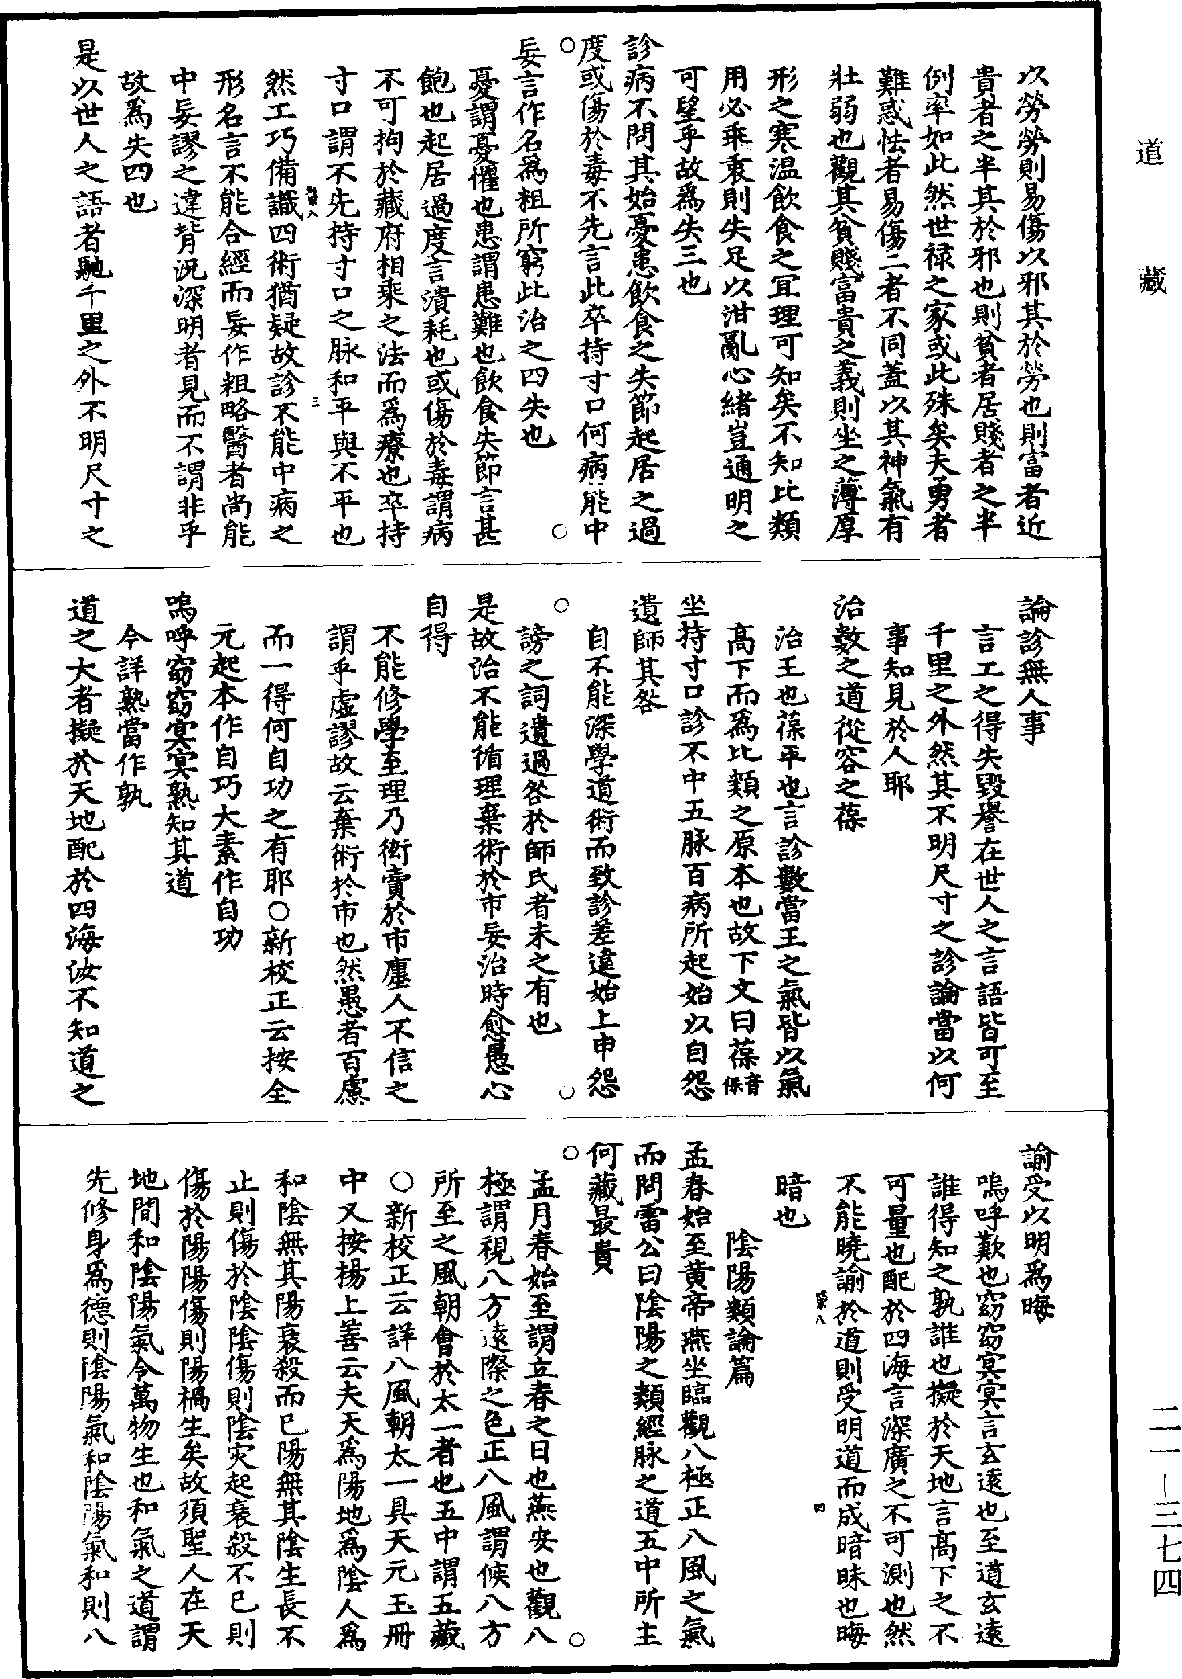 道藏
以勞勞則易傷以邪其於勞也則富者近
貴者之半其於邪也則貧者居賤者之半
例率如此然世禄之家或此殊矣夫勇者
難惑怯者易傷二者不同蓋以其神氣有
壯弱也觀其貧賤富貴之義則坐之薄厚
形之寒温飲食之宜理可知矣不知比類
用必乖衰則失足以泔亂心緒豈通明之
可望乎故爲失三也
診病不問其始憂患飲食之失節起居之過
度或傷於毒不先言此卒持寸口何病能中
妄言作名爲粗所窮此治之四失也
憂謂憂懼也患謂患難也飲食失節言甚
飽也起居過度言潰耗也或傷於毒謂病
不可拘於藏府相乘之法而爲療也卒持
寸口謂不先持寸口之脉和平與不平也
三
然工巧備識四術猶疑故診不能中病之
形名言不能合經而妄作粗略醫者尚能
中妄謬之違背況深明者見而不謂非乎
故爲失四也
是以世人之語者馳千里之外不明尺寸之
論診無人事
言工之得失毀譽在世人之言語皆可至
千里之外然其不明尺寸之診論當以何
事知見於人耶
治數之道從容之葆
治王也葆平也言診數當王之氣皆以氣
高下而爲比類之原本也故下文曰葆音保
坐持寸口診不中五脉百病所起始以自怨
遺師其咎
自不能深學道術而致診差違始上申怨
謗之詞遺過咎於師氏者未之有也
是故治不能循理棄術於市妄治時愈愚心
自得
不能修學至理乃衒賣於市廛人不信之
謂乎虛謬故云棄術於市也然愚者百慮
而一得何自功之有耶○新校正云按全
元起本作自巧大素作自功
嗚呼窈窈冥冥熟知其道
今詳熟當作孰
道之大者擬於天地配於四海汝不知道之
諭受以明爲晦
嗚呼歎也窈窈冥冥言玄遠也至道玄遠
誰得知之孰誰也擬於天地言高下之不
可量也配於四海言深廣之不可測也然
不能曉諭於道則受明道而成暗昧也晦
四
暗也
陰陽類論篇
孟春始至黄帝燕坐臨觀八極正八風之氣
而問雷公曰陰陽之類經脉之道五中所主
何藏最貴
孟月春始至謂立春之日也燕安也觀八
極謂視八方遠際之色正八風謂候八方
所至之風朝會於太一者也五中謂五藏
○新校正云詳八風朝太一具天元玉冊
中又按楊上善云夫天爲陽地爲陰人爲
和陰無其陽衰殺而已陽無其陰生長不
止則傷於陰陰傷則陰灾起衰殺不已則
傷於陽陽傷則陽禍生矣故須聖人在天
地間和陰陽氣令萬物生也和氣之道謂
先修身爲德則陰陽氣和陰陽氣和則八
二一–三七四